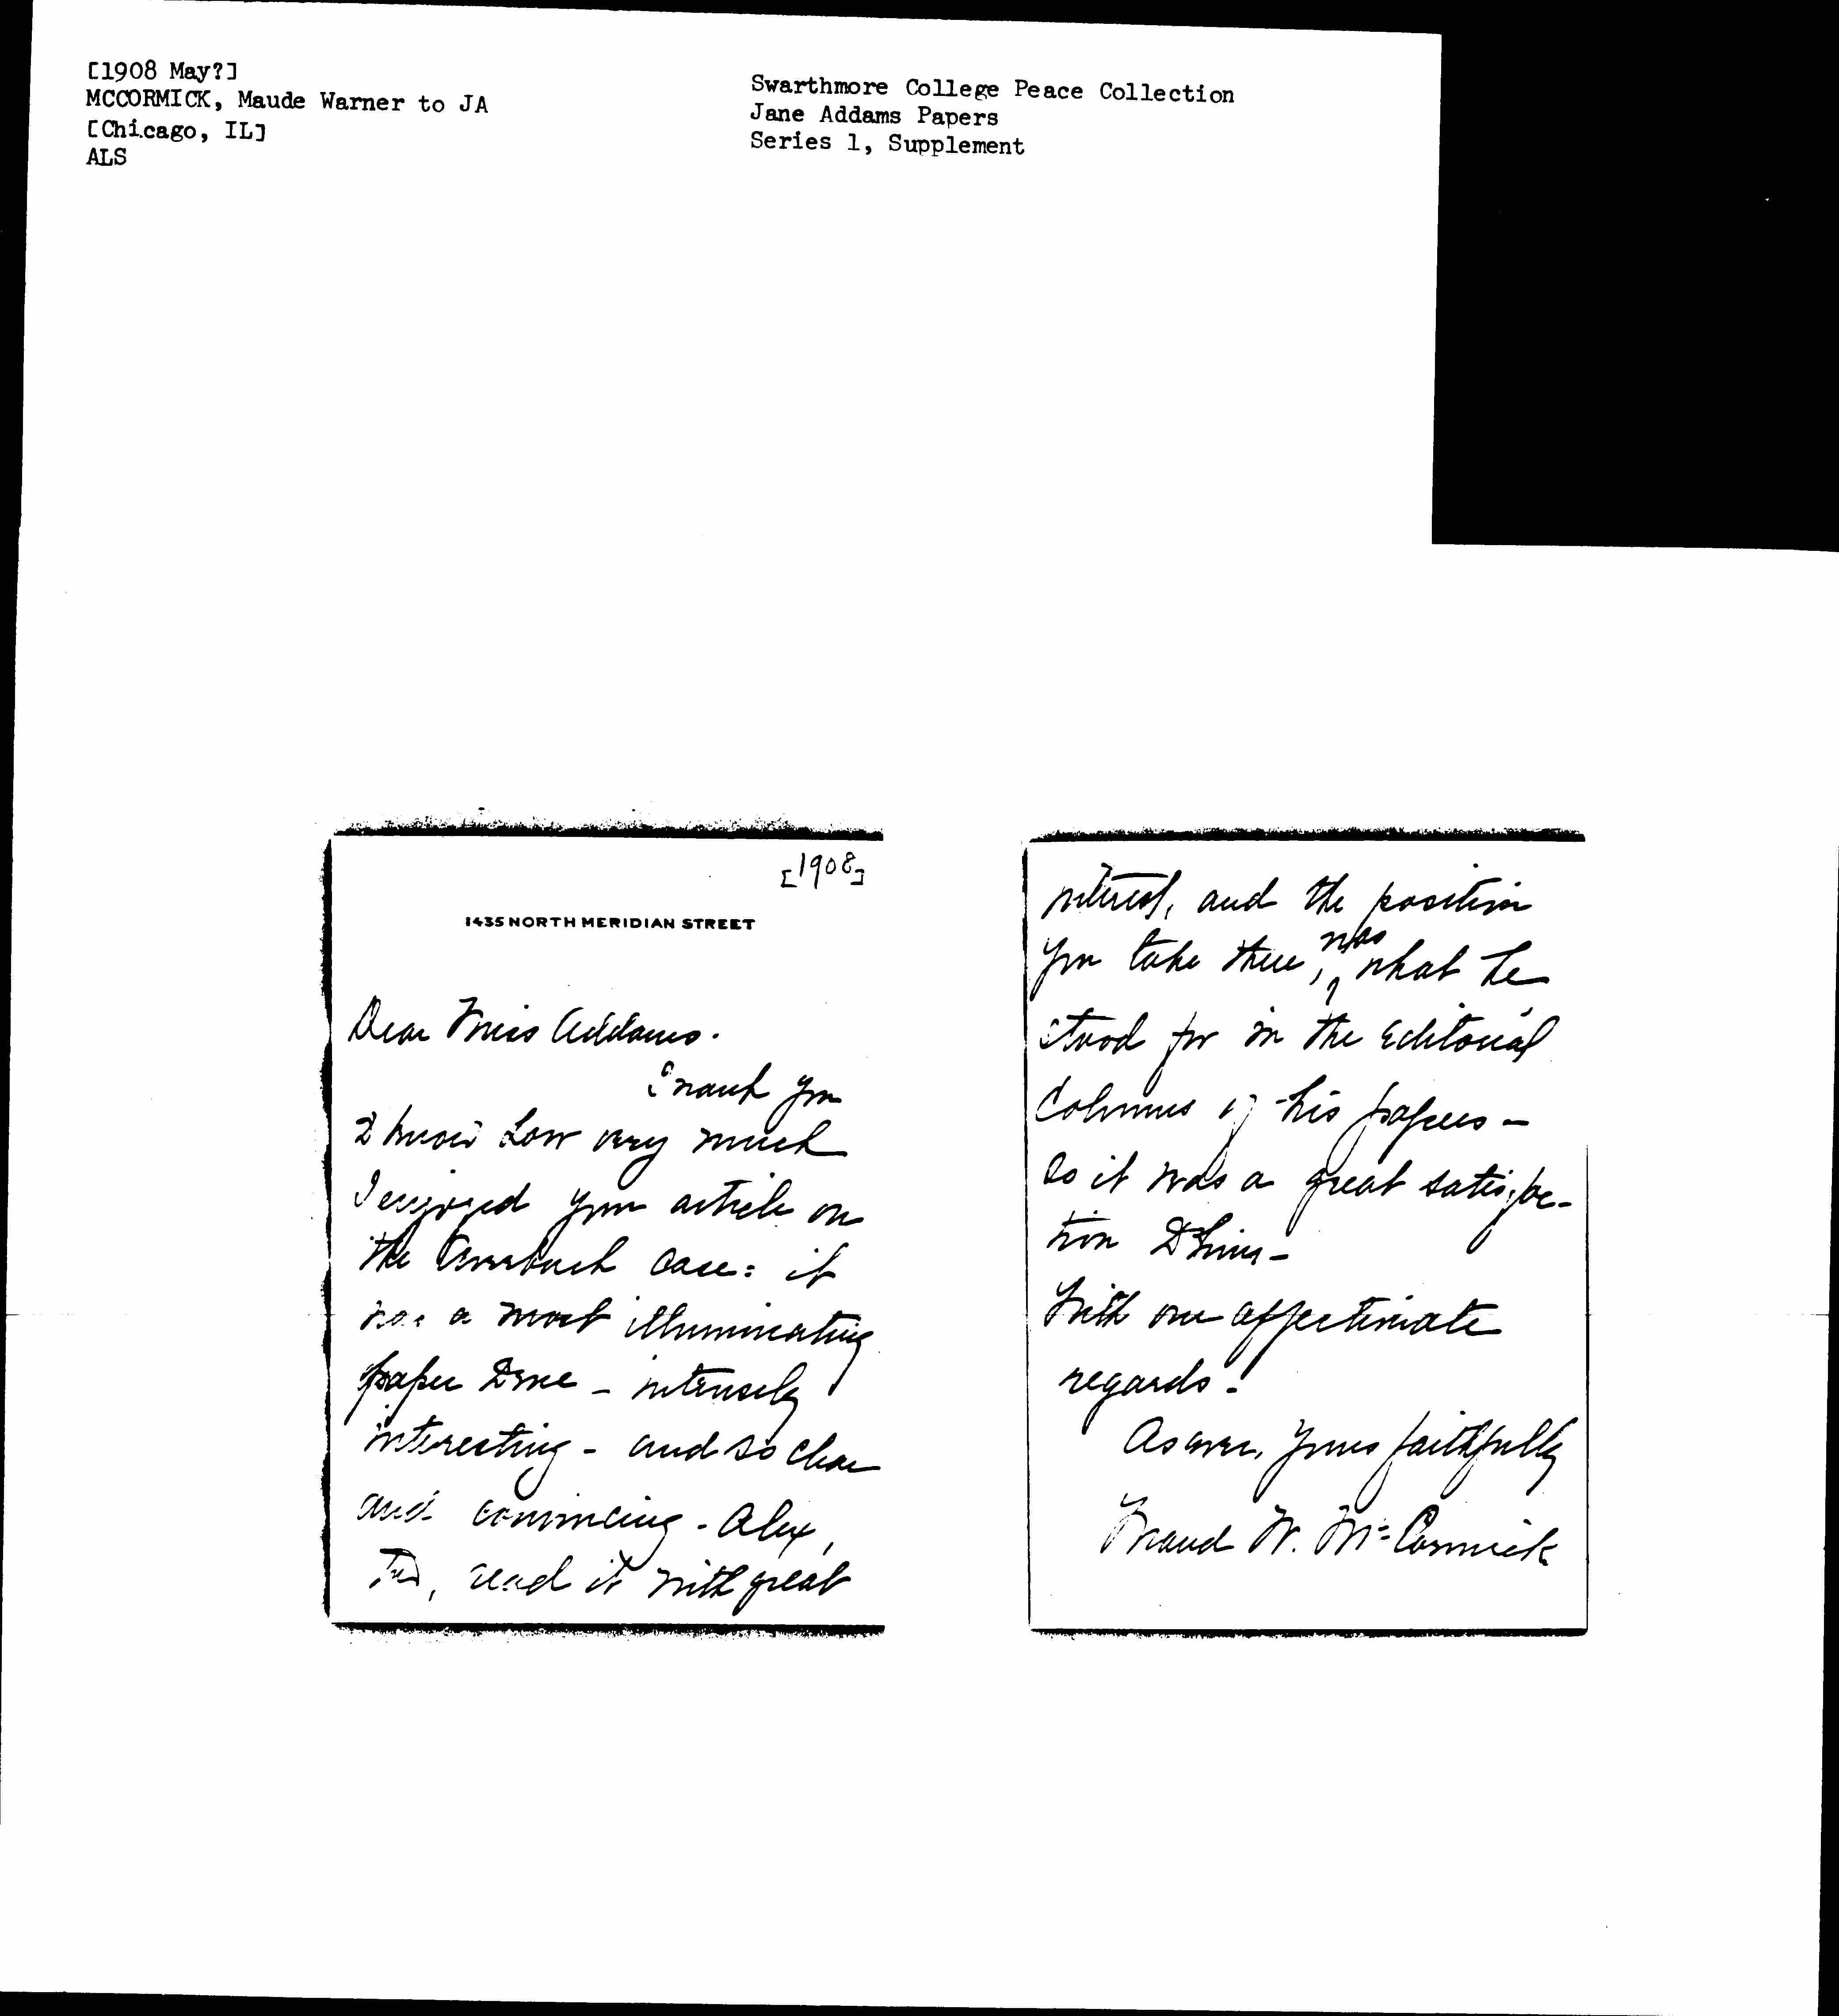 [1908 May?]
MCCORMICK, Maude Warner to JA
[Chicago, IL]
ALS
Swarthmore College Peace Collection
Jane Addams Papers
Series 1, Supplement
[1908]
1435 NORTH MERIDIAN STREET
Dear Miss Addams.
I want you
to know how very much
I enjoyed your article on
the Averbuch case: it
was a most illuminating
paper to me – intensely
interesting – and so clear
and convincing. Alex,
too, read it with great
interest, and the position
you take there, was what he
stood for in the editorial
columns of his papers –
so it was a great satisfac-
tion to him –
With our affectionate
regards.
As ever, yours faithfully
Maud W. McCormick